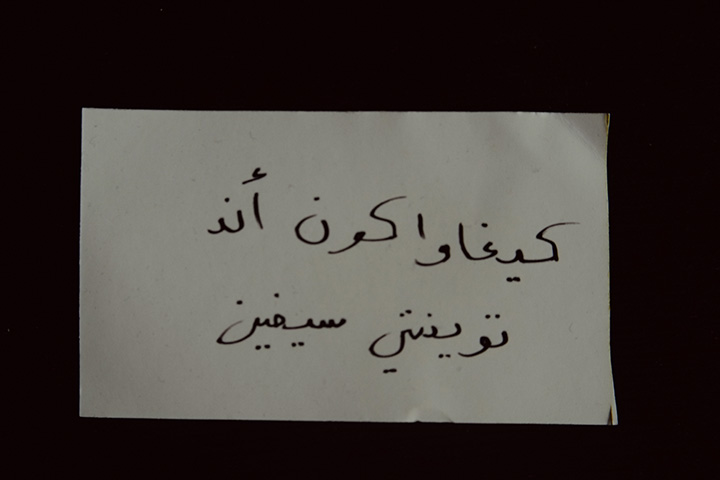 كيغاواكون أند
توينتي سيفين